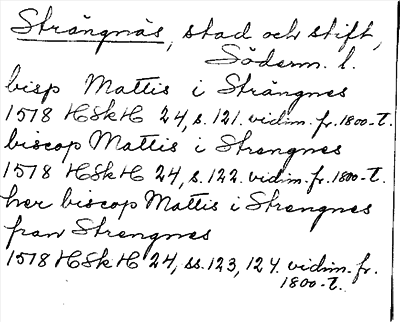 Strängnäs, stad och stift,
Söderm. l.
bisp Mattis i Strängnes
1518 HSkH 24, s. 121. vidim. fr. 1800-t.
biscop Mattis i Strengnes
1518 HSkH 24, s. 122. vidim. fr. 1800-t.
her biscop Mattis i Strengnes
fran Strengnes
1518 HSkH 24, ss. 123, 124. vidim. fr.
1800-t.